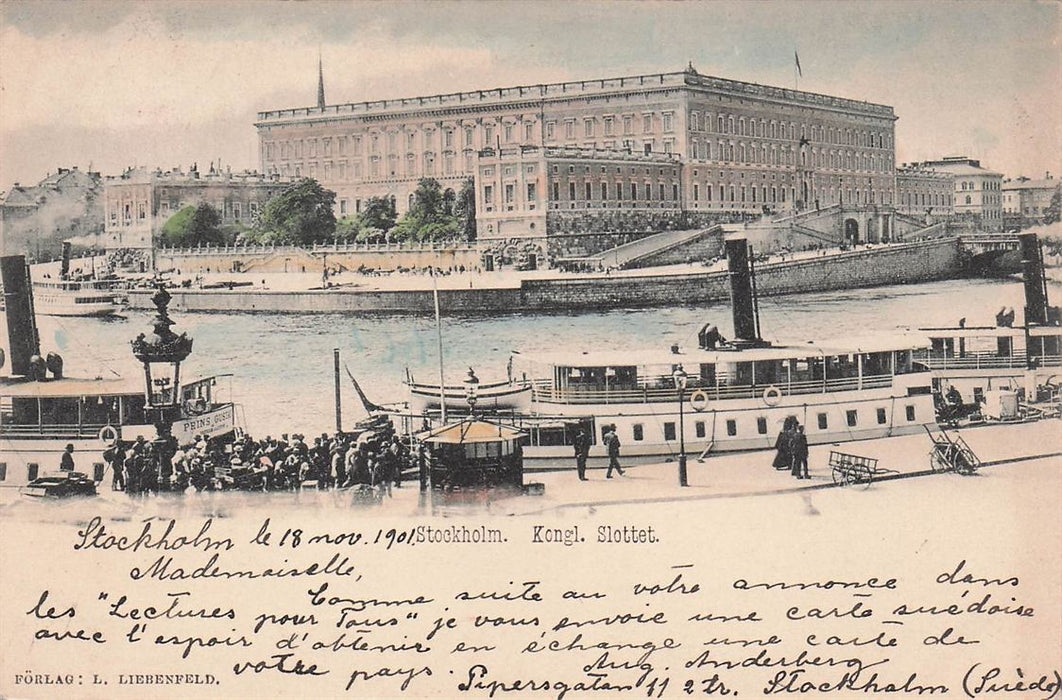 PRINS GUSTA
Stockholm le 18 nov. 1901.
Stockholm. Kongl. Slottet.
Mademoiselle,
Comme suite au votre annonce dans
les "Lectures pour Tous" je vous envoie une carte suédoise
avec l'espoir d'obtenir en échange une carte de
votre pays. Aug. Anderberg
FÖRLAG: L. LIEBENFELD.
Pipersgatan 11 2 tr. Stockholm (Suède